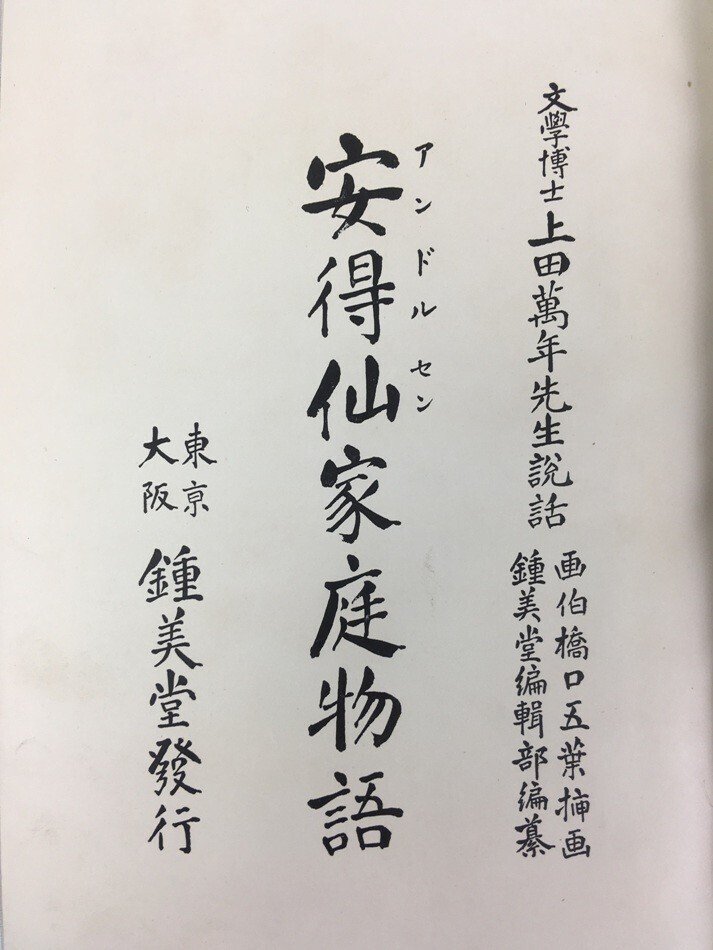 文學博士上田萬年先生説話
画伯橋口五葉挿画
鍾美堂編輯部編纂
アンドルセン
安得仙家庭物語
東京
大阪
鍾美堂發行